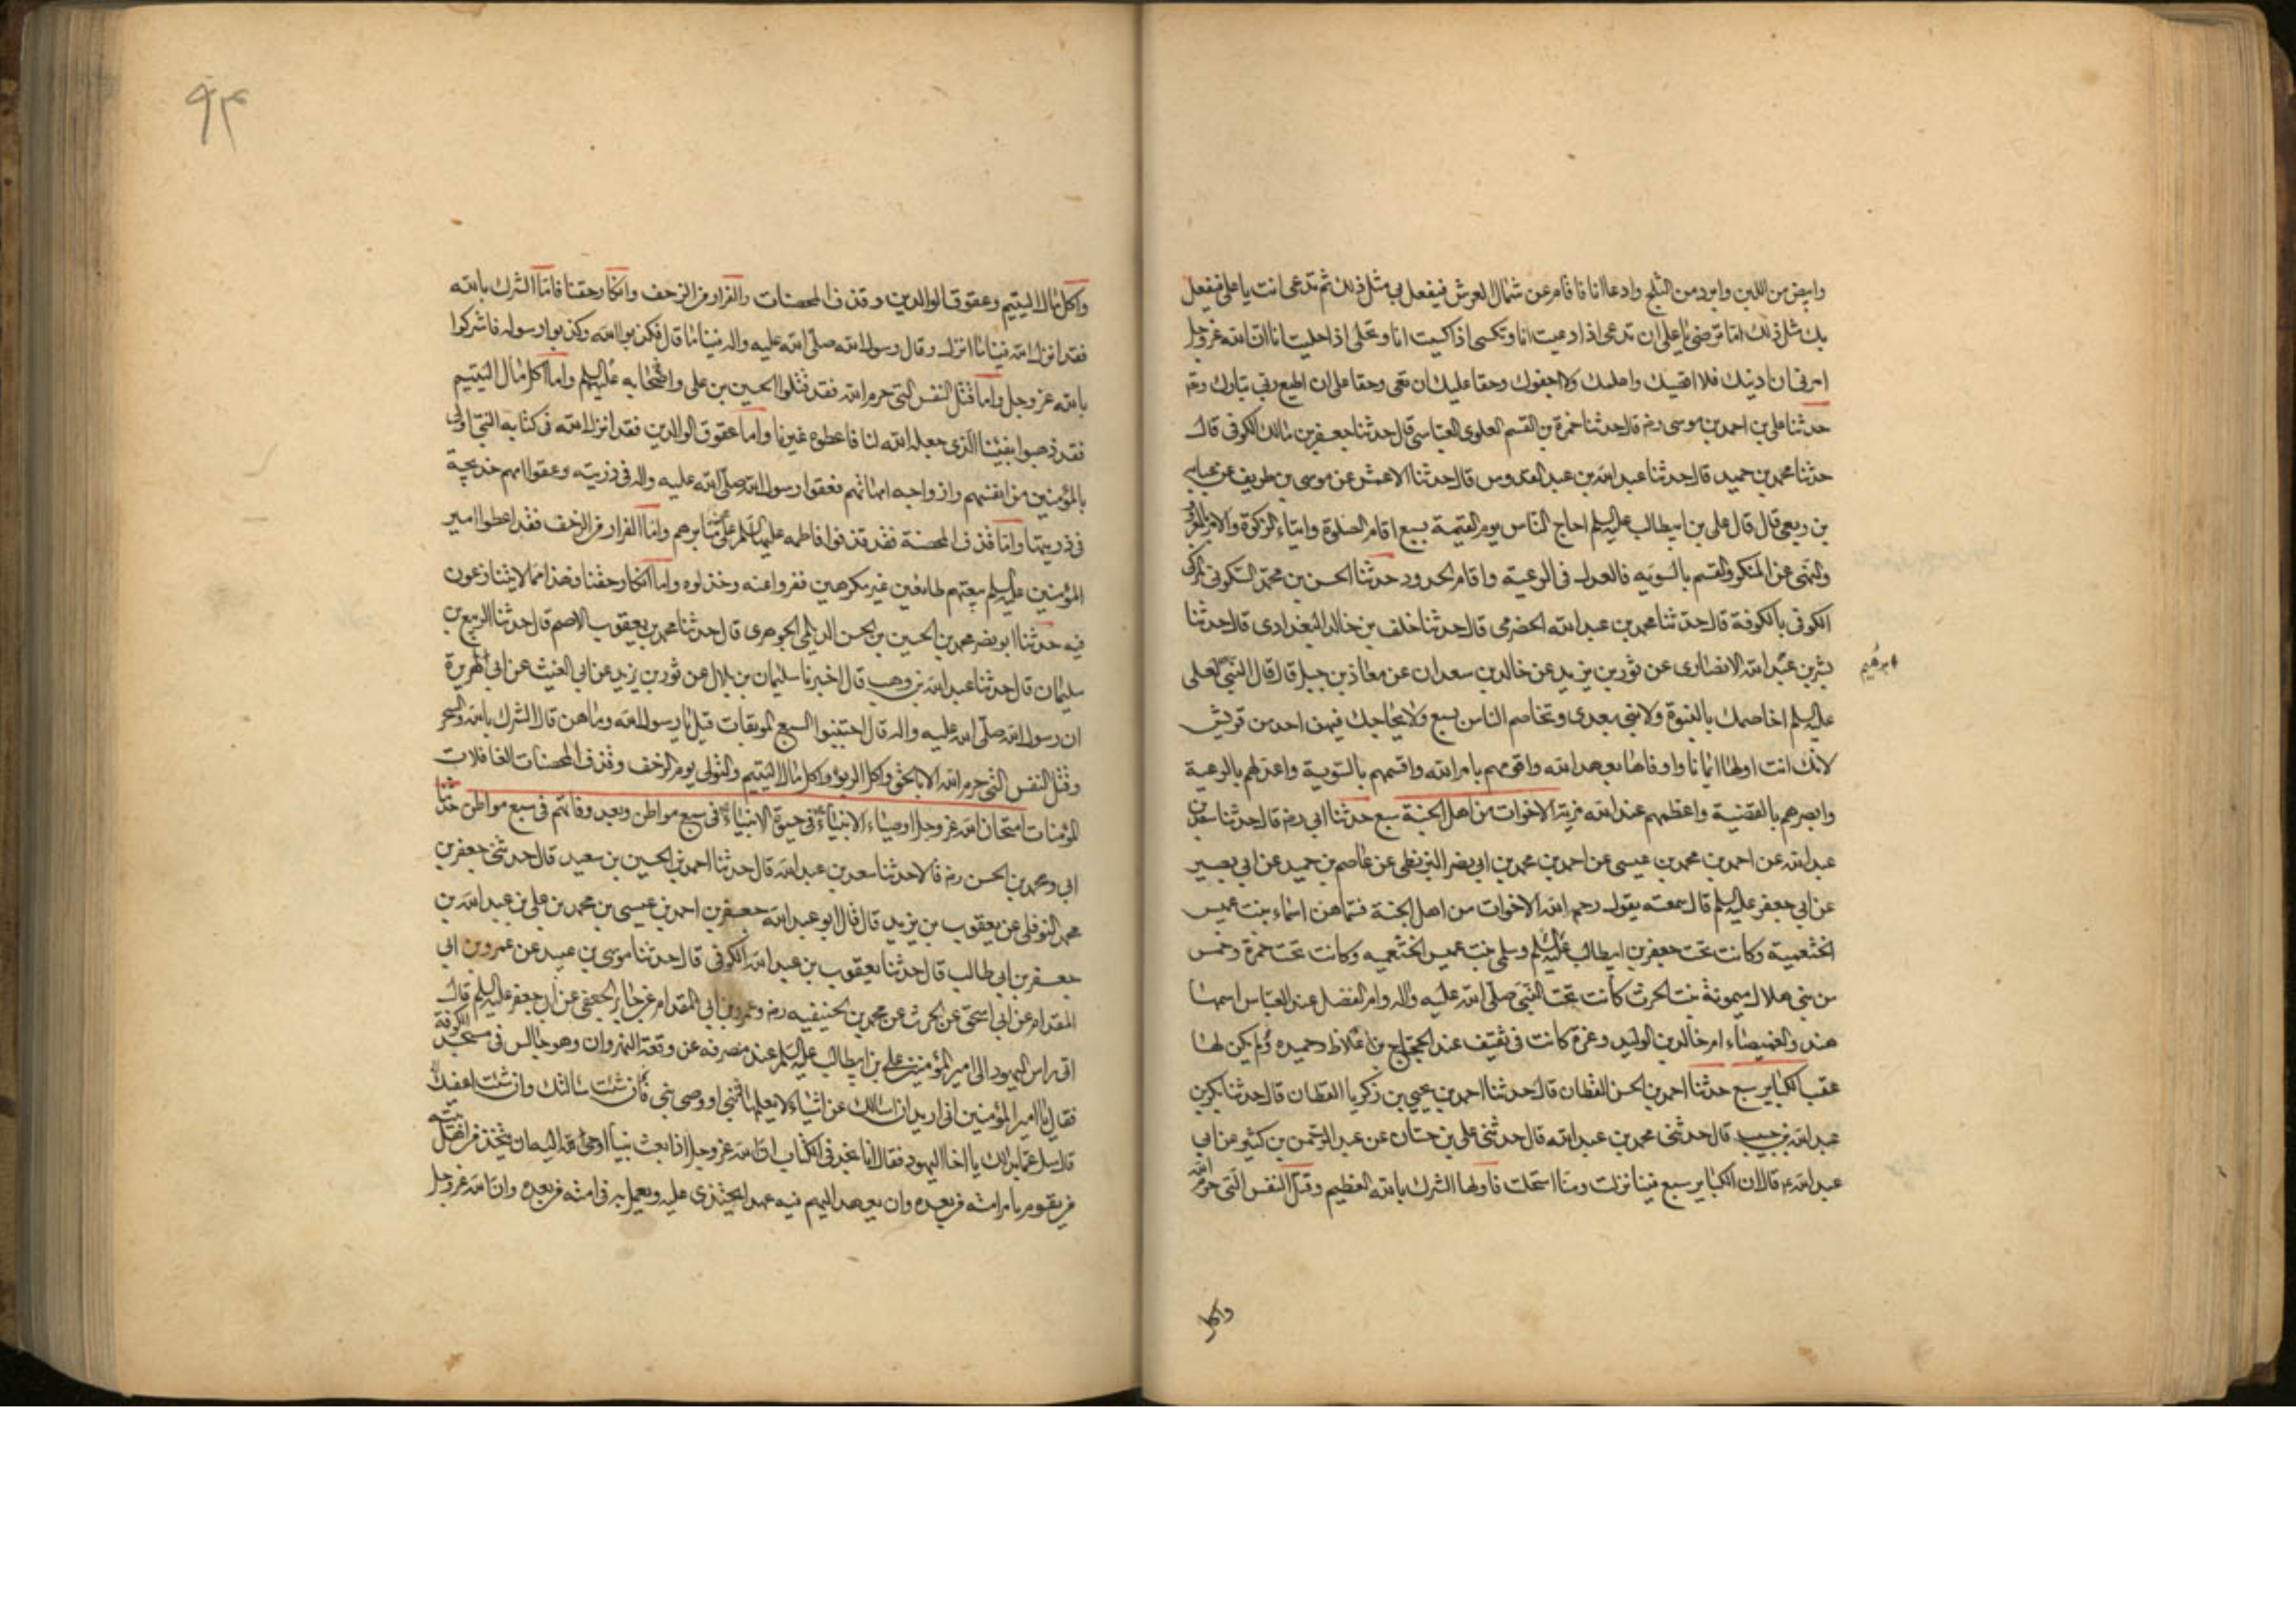 وابيض من اللبن وابرد من الثلج وادعا انا فاقام عن شمال العرش فيفعل بي مثل ذلك ثم تدعى انت يا علي فيفعل
بك مثل ذلك اما ترضى يا علي ان تدعى اذا دعيت انا وتكسى اذا كسيت انا وتحلى اذا حليت انا ان الله عز وجل
امرني ان ادنيك فلا اقصيك واعلمك ولا اجفوك وحقا عليك ان تعي وحقا علي ان اطيع ربي تبارك وتع
حدثنا علي بن احمد بن موسى رضه قال حدثنا حمزة بن القسم العلوي العباسي قال حدثنا جعفر بن مالك الكوفي قال
حدثنا محمد بن حميد قال حدثنا عبد الله بن عبد القدوس قال حدثنا الاعمش عن موسى بن طريف عن عبايه
بن ربعي قال قال علي بن ابيطالب عليه السلم احاج الناس يوم القيمة بسبع اقام الصلوة وايتاء الزكوة والامر بالمعروف
والنهى عن المنكر والقسم بالسويه فالعدل في الرعية واقام الحدود حدثنا الحسن بن محمد السكوني المزكى
الكوفي بالكوفة قال حدثنا محمد بن عبد الله الحضرمي قال حدثنا خلف بن خالد البغدادي قال حدثنا
بشر بن عبد الله الانصاري عن ثور بن يزيد عن خالد بن سعدان عن معاذ بن جبل قال قال النبي لعلى
ابرهيم
عليه السلم اخاصمك بالنبوة ولا نبي بعدي وتخاصم الناس بسبع ولا يحاجك فيهن احد من قريش
لانك انت اولها ايمانا واوفاها بعهد الله واقومهم بامر الله واقسمهم بالسوية واعدلهم بالرعية
وابصرهم بالقضية واعظمهم عند الله مزية الاخوات من اهل الجنة سبع حدثنا ابي رضه قال حدثنا سعد بن
عبد الله عن احمد بن محمد بن عيسى عن احمد بن محمد بن ابي نصر البزنطي عن عاصم بن حميد عن ابي بصير
عن ابي جعفر عليه السلم قال سمعته يقول رحم الله الاخوات من اهل الجنة فسماهن اسماء بنت عميس
الخثعمية وكانت تحت جعفر بن ابيطالب عليه السلم وسلمى بنت عميس الخثعميه وكانت تحت حمزة وخمس
من بني هلال ميمونة بنت الحرث كانت تحت النبي صلى الله عليه واله وام الفضل عند العباس اسمها
هند والغميصاء ام خالد بن الوليد وعزة كانت في ثقيف عند الحجاج بن غلاظ وحميده ولم يكن لها
عقب الكباير سبع حدثنا احمد بن الحسن القطان قال حدثنا احمد بن يحيى بن زكريا القطان قال حدثنا بكر بن
عبد الله بن حبيب قال حدثني محمد بن عبد الله قال حدثني علي بن حسان عن عبد الرحمن بن كثير عن ابي
عبد الله ع قال ان الكباير سبع فينا نزلت ومنا استحلت فاولها الشرك بالله العظيم وقتل النفس التي حرم الله
واكل
۹۴
واكل مال اليتيم وعقوق الوالدين وقذف المحصنات والفرار من الزحف وانكار حقنا فاما الشرك بالله
فقد انزل الله فينا ما انزل وقال رسول الله صلى الله عليه واله فينا ما قال فكذبوا الله وكذبوا رسوله فاشركوا
بالله عز وجل واما قتل النفس التي حرم الله فقد قتلوا الحسين بن علي واصحابه عليهم السلم واما اكل مال اليتيم
فقد ذهبوا بفيئنا الذي جعله الله لنا فاعطوه غيرنا واما عقوق الوالدين فقد انزل الله في كتابه النبي اولى
بالمؤمنين من انفسهم وازواجه امهاتهم فعقوا رسول الله صلى الله عليه واله في ذريته وعقوا امهم خديجة
في ذريتها واما قذف المحصنة فقد قذفوا فاطمه عليها السلم على منابرهم واما الفرار من الزحف فقد اعطوا امير
المؤمنين عليه السلم بيعتهم طائعين غير مكرهين ففروا عنه وخذلوه واما انكار حقنا فهذا مما لا يتنازعون
فيه حدثنا ابو نصر محمد بن الحسين بن الحسن الديلمي الجوهري قال حدثنا محمد بن يعقوب الاصم قال حدثنا الربيع بن
سليمان قال حدثنا عبد الله بن وهب قال اخبرنا سليمان بن بلال عن ثور بن يزيد عن ابي الغيث عن ابي هريرة
ان رسول الله صلى الله عليه واله قال اجتنبوا السبع الموبقات قيل يا رسول الله وما هن قال الشرك بالله والسحر
وقتل النفس التي حرم الله الا بالحق واكل الربوا واكل مال اليتيم والتولي يوم الزحف وقذف المحصنات الغافلات
المؤمنات امتحان الله عز وجل اوصياء الانبياء في حيوة الانبياء في سبع مواطن وبعد وفاتهم في سبع مواطن حدثنا
ابي ومحمد بن الحسن رضه قالا حدثنا سعد بن عبد الله قال حدثنا احمد بن الحسين بن سعيد قال حدثني جعفر بن
محمد النوفلي عن يعقوب بن يزيد قال قال ابو عبد الله جعفر بن احمد بن عيسى بن محمد بن علي بن عبد الله بن
جعفر بن ابي طالب قال حدثنا يعقوب بن عبد الله الكوفي قال حدثنا موسى بن عبيد عن عمرو بن ابي
المقدام عن ابي اسحق عن الحرث عن محمد بن الحنيفيه رضه وعمرو بن ابي المقدام عن جابر الجعفي عن ابي جعفر عليه السلم قال
اتى راس اليهود الى امير المؤمنين علي بن ابيطالب عليه السلم عند منصرفه عن وقعة النهروان وهو جالس في مسجد الكوفة
فقال يا امير المؤمنين اني اريد ان اسالك عن اشياء لا يعلمها الا نبي او وصى نبي فان شئت سالتك وان شئت اعفيك
قال سل عما بدا لك يا اخا اليهود فقال انا نجد في الكتاب ان الله عز وجل اذا بعث نبيا اوحى اليه ان يتخذ من اهل بيته
من يقوم بامر امته من بعده وان يعهد اليهم فيه عهدا يحتذى عليه ويعمل به في امته من بعده وان الله عز وجل